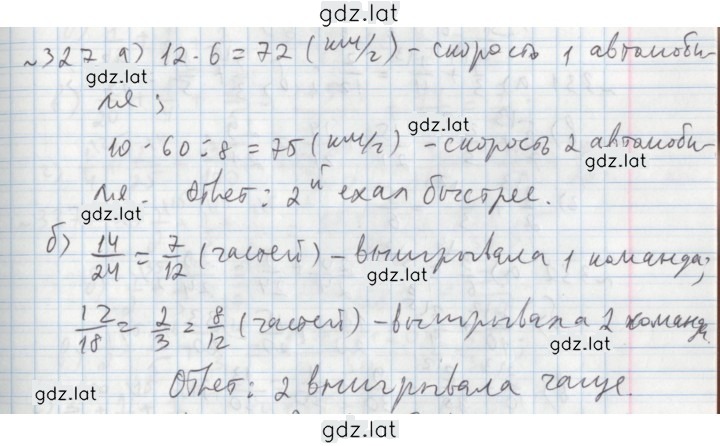 gdz.lat
№327 а) 12·6=72 (км/г) - скорость 1 автомоби-
gdz.lat
ля;
gdz.lat
10·60:8=75 (км/г) - скорость 2 автомоби-
ля. Ответ: 2й ехал быстрее.
gdz.lat
б) 14/24 = 7/12 (частей) - выигрывала 1 команда;
gdz.lat
12/18 = 2/3 = 8/12 (частей) - выигрывала 2 команда.
gdz.lat
Ответ: 2 выигрывала чаще.
gdz.lat
gdz.lat